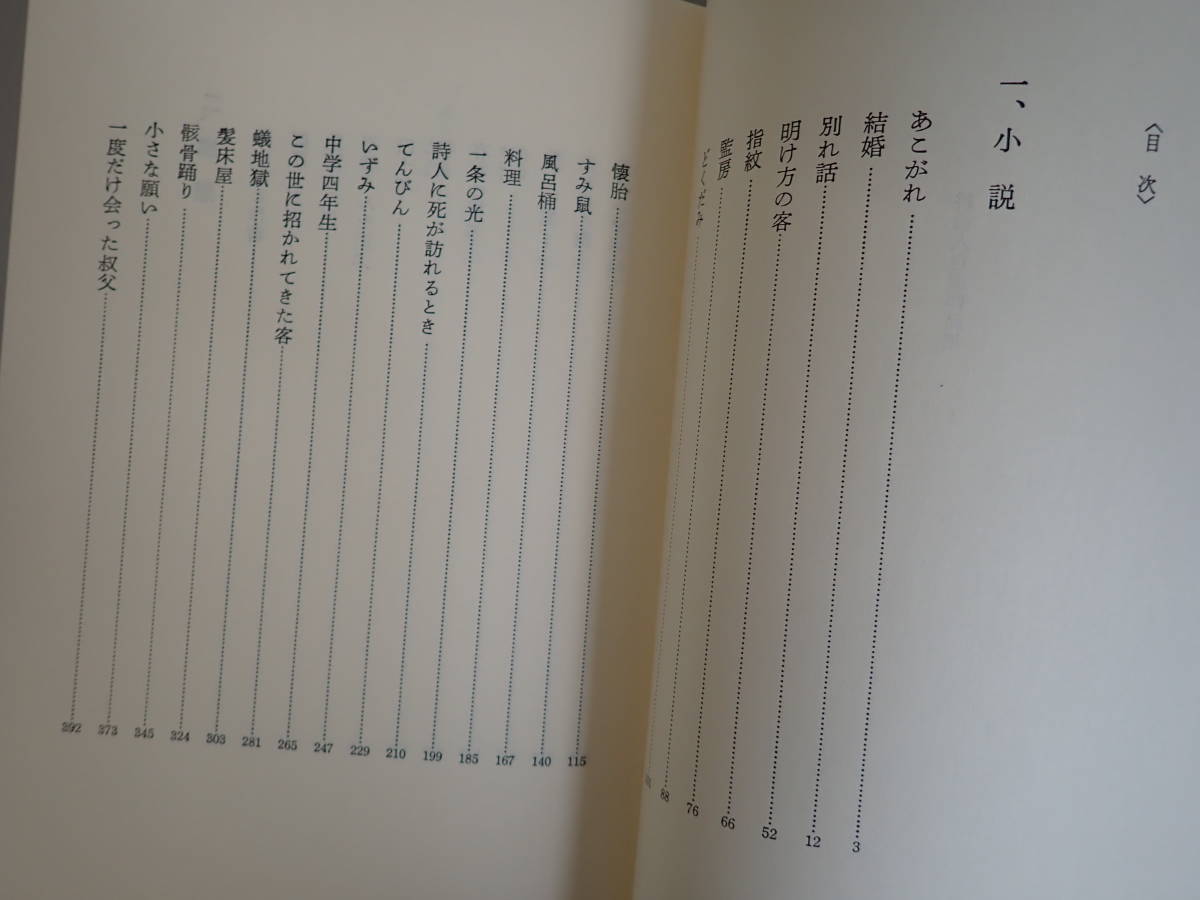 〈目次〉
一、小説
あこがれ 3
結婚 12
別れ話 52
明け方の客 66
指紋 76
監房 88
どくだみ
懐胎 115
すみ鼠 140
風呂桶 167
料理 185
一条の光 199
詩人に死が訪れるとき 210
てんびん 229
いずみ 247
中学四年生 265
この世に招かれてきた客 281
蟻地獄 303
髪床屋 324
骸骨踊り 345
小さな願い 373
一度だけ会った叔父 392